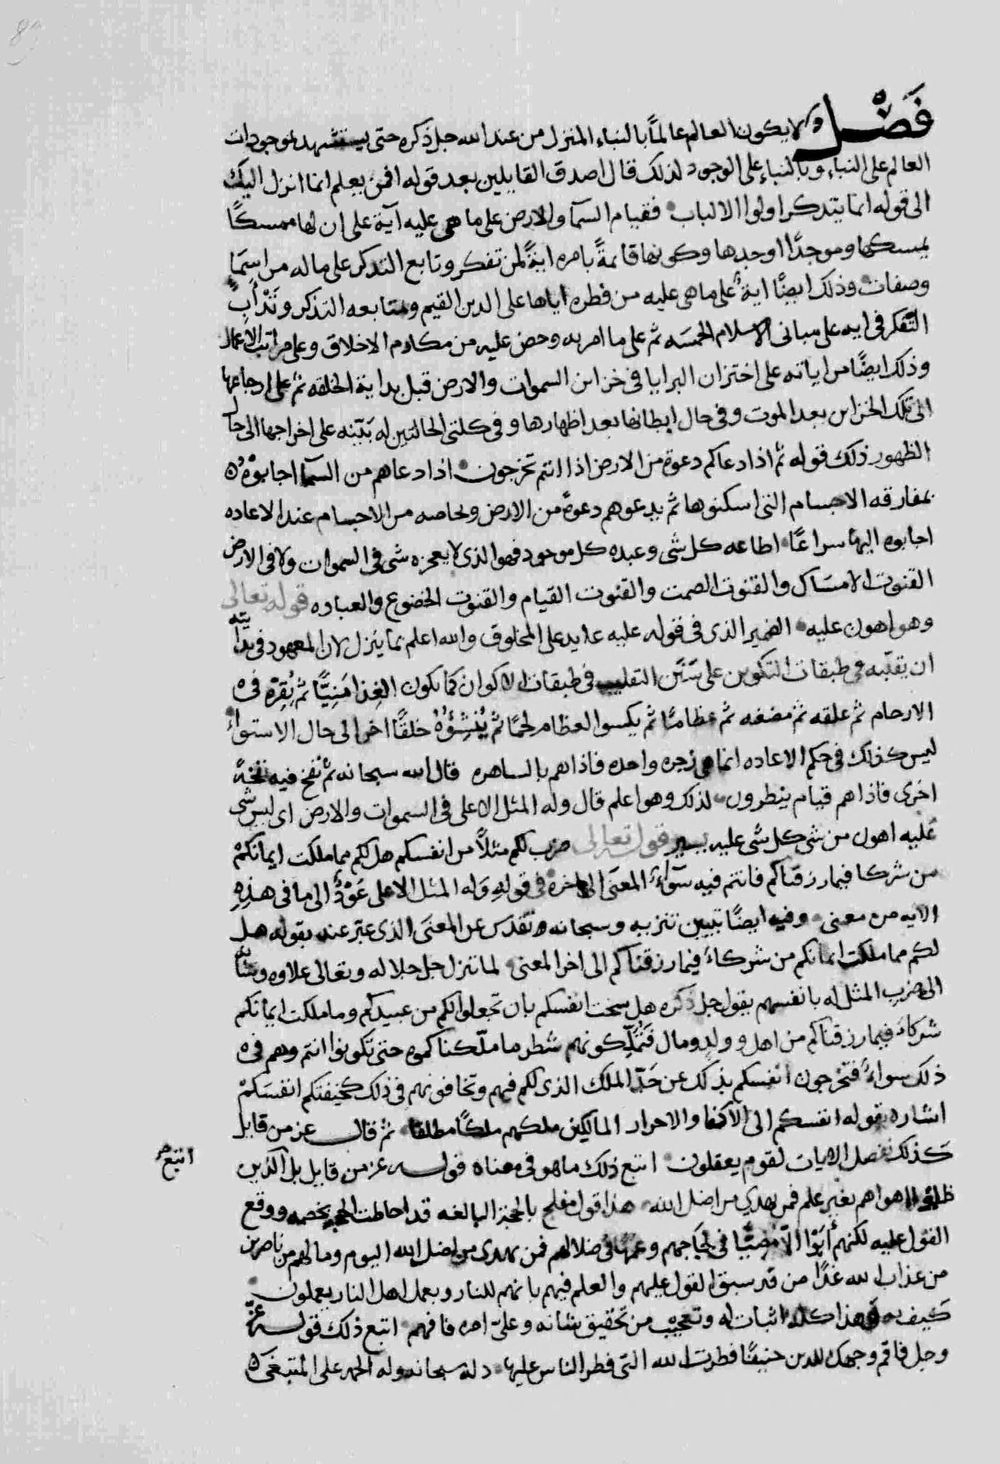 فَصْل ولا يكون العالم عالماً بالنباء المنزل من عند الله جل ذكره حتى يستشهد بموجودات
العالم على النباء وبالنباء على الوجود لذلك قال اصدق القايلين بعد قوله افمن يعلم انما انزل اليك
الى قوله انما يتذكر اولوا الالباب فقيام السما والارض على ما هي عليه آية على ان لها ممسكًا
يمسكها وموجدًا اوجدها وكونها قايمةً بامره ايةً لمن تفكر وتابع التذكر على ماله من اسمَا
وصفات وذلك ايضًا ايةٌ على ما هي عليه من فطره اياها على الدين القيم ومتابعه التذكر وتَدْأَب
التَّفكر في ايه على مباني الاسلام الخمسَه ثم على ما امر به وحض عليه من مكارم الاخلاق وعلى مراتب الاعمال
وذلك ايضًا من اياته على اختزان البرايا في خزاين السموات والارض قبل بداية الخلقه ثم على ارجاعها
الى تلك الخزاين بعد الموت وفي حال ابطانها بعد اظهارها وفي كلتى الحالتين له بَيّنه على اخراجها الى حال
الظهور ذلك قوله ثم اذا دعاكم دعوة من الارض اذا انتم تخرجون اذا دعاهم من السما اجابوْهُ
بمفارقه الاجسام التى اسكنوها ثم يدعوهم دعوةً من الارض ولخاصه من الاجسام عند الاعاده
اجابوه اليها سراعًا اطاعه كل شى وعبده كل موجود فهو الذى لا يعجزه شى في السموات ولا في الارض
القنوت الامسَاك والقنوت الصمت والقنوت القيام والقنوت الخضوع والعباده قوله تعالى
وهو اهون عليه الضمير الذى في قوله عليه عايد على المخلوق والله اعلم بما ينزل لان المعهود في بدايته
ان يقلّبه في طبقات التكوين على سَنَن التقليب في طبقات الاكوان كما يكون الغذا مَنِيًّا ثم يُقِرّه في
الارحام ثم علقه ثم مضغه ثم عظامًا ثم يكسوا العظام لحمًا ثُمَّ يُنْشِؤُهُ خلقًا اخر الى حال الاستواءُ
ليس كذلك في حكم الاعاده انما هي زجره واحده فاذا هم بالساهره قال الله سبحانه ثم نفخ فيه نفخةً
اخرى فاذا هم قيام ينظرون لذلك وهو اعلم قال وله المثل الاعلى في السموات والارض اى ليس شى
عليه اهون من شى كل شى عليه يسير قوله تعالى ضرب لكم مثلاً من انفسكم هل لكم مما ملكت ايمانكمْ
من شركا فيما رزقناكم فانتم فيه سَوَاء المعنَى الى اخره في قوله وَله المثل الاعلى عَوْدٌ الى ما في هذه
الايه من معنى وفيه ايضًا تبيين تنزيه وسبحانه وتقدس عن المعنَى الذى عبّر عنه بقوله هل
لكم مما ملكت ايمانكم من شركاء فيما رزقناكم الى اخر المعنى لما تنزل جل جلاله وتعالى علاوه وشانه
الى ضرب المثل له بانفسهم يقول جل ذكره هل سخت انفسكم بان تجعلوا لكم من عبيدكم وما ملكت ايمانكم
شركاءَ فيما رزقناكم من اهل وولد ومال فتُمَلِّكونهم شطر ما ملّكناكموه حتى تكونوا انتم وهم في
ذلك سواءً فتخرجون انفسكم بذلك عن حَدّ الملك الذى لكم فيهم وتخافونهم في ذلك كخيفتكم انفسكمْ
اشاره بقوله انفسكم الى الأكفا والاحرار المالكين ملكهم ملكًا مطلقًا ثم قال عز من قايل
كَذلك نفصل الايات لقوم يعقلون اتبع ذلك ما هو في معناه قوله عز من قايل بل اتبع الذين
ظلموا اهواهم بغير علم فمن يهدى من اضل الله هذا قول مفلج بالحجة البالغه قد احاطت الحجة بخصمه ووقع
القول عليه لكنهم أَبَوْا الّا مُضِيًّا في لجاجهم وعمهًا في ضلالهم فمن يهدى من اضل الله اليوم وما لهم من ناصرين
من عذاب الله غدًا من قد سبق القول عليهم والعلم فيهم بانهم للنار وبعمل اهل النار يعملون
كيف به وهذا كله اثبات له وتعجيب من تحقيق شانه وعلى امره فافهم اتبع ذلك قوله عزّ
وجل فاقم وجهك للدين حنيفًا فطرت الله التى فطر الناس عليها دله سبحانه وله الحمد على المبتغى